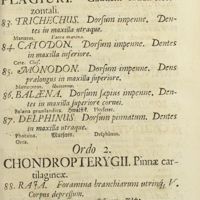 PLAGIURI.
zontali.
83. TRICHECHUS. Dorſum impenne. Den-
tes in maxilla utraque.
Manatus.
84. CATODON. Dorſum impenne. Dentes
in maxilla inferiore.
Cete.
85. MONODON. Dorſum impenne. Dens
prælongus in maxilla ſuperiore.
86. BALÆNA. Dorſum ſæpius impenne. Den-
tes in maxilla ſuperiore cornei.
Balæna
87. DELPHINUS. Dorſum pinnatum. Dentes
in maxilla utraque.
Phocæna. Delphinus.
Orca.
Ordo 2.
CHONDROPTERYGII. Pinnæ car-
tilagineæ.
88. RAJA. Foramina branchiarum utrinq; V.
Corpus depreſſum.